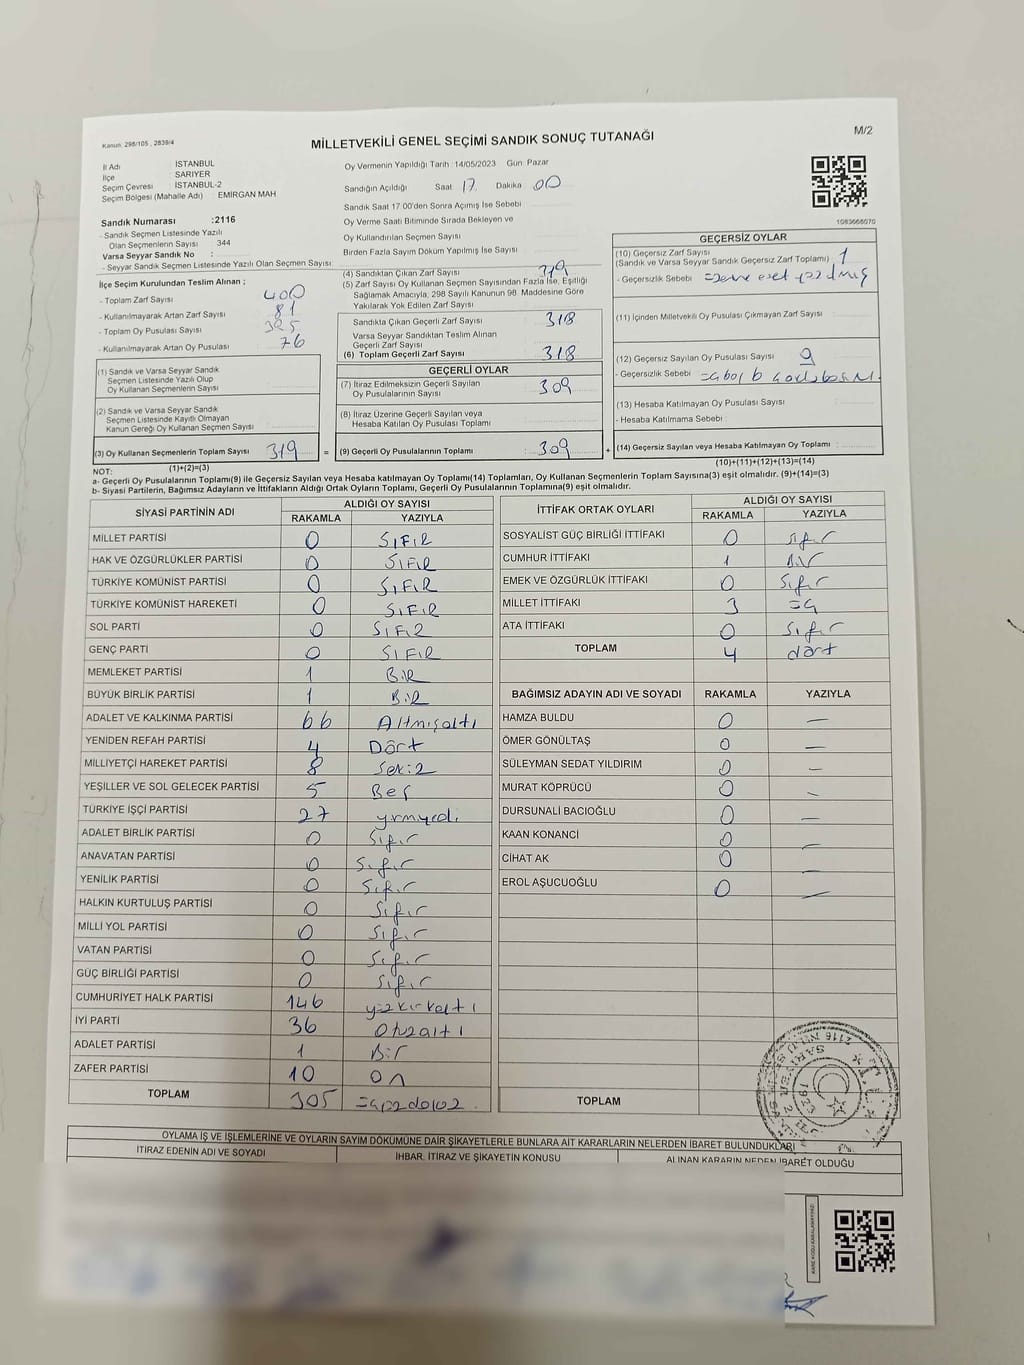 Kanun. 298/105 , 2839/4
MİLLETVEKİLİ GENEL SEÇİMİ SANDIK SONUÇ TUTANAĞI
M/2
İl Adı : İSTANBUL
İlçe : SARIYER
Seçim Çevresi : İSTANBUL-2
Seçim Bölgesi (Mahalle Adı) : EMİRGAN MAH
Sandık Numarası :2116
- Sandık Seçmen Listesinde Yazılı
Olan Seçmenlerin Sayısı : 344
Varsa Seyyar Sandık No :
- Seyyar Sandık Seçmen Listesinde Yazılı Olan Seçmen Sayısı:
İlçe Seçim Kurulundan Teslim Alınan ;
- Toplam Zarf Sayısı : 400
- Kullanılmayarak Artan Zarf Sayısı : 81
- Toplam Oy Pusulası Sayısı : 385
- Kullanılmayarak Artan Oy Pusulası : 76
(1) Sandık ve Varsa Seyyar Sandık
Seçmen Listesinde Yazılı Olup
Oy Kullanan Seçmenlerin Sayısı :
(2) Sandık ve Varsa Seyyar Sandık
Seçmen Listesinde Kayıtlı Olmayan
Kanun Gereği Oy Kullanan Seçmen Sayısı :
(3) Oy Kullanan Seçmenlerin Toplam Sayısı 319 =
(1)+(2)=(3)
Oy Vermenin Yapıldığı Tarih :14/05/2023 Gün: Pazar
Sandığın Açıldığı Saat 17 Dakika 00
Sandık Saat 17:00'den Sonra Açılmış İse Sebebi
Oy Verme Saati Bitiminde Sırada Bekleyen ve
Oy Kullandırılan Seçmen Sayısı
Birden Fazla Sayım Döküm Yapılmış İse Sayısı
(4) Sandıktan Çıkan Zarf Sayısı 319
(5) Zarf Sayısı Oy Kullanan Seçmen Sayısından Fazla İse, Eşitliği
Sağlamak Amacıyla; 298 Sayılı Kanunun 98. Maddesine Göre
Yakılarak Yok Edilen Zarf Sayısı
Sandıkta Çıkan Geçerli Zarf Sayısı : 318
Varsa Seyyar Sandıktan Teslim Alınan
Geçerli Zarf Sayısı
(6) Toplam Geçerli Zarf Sayısı : 318
GEÇERLİ OYLAR
(7) İtiraz Edilmeksizin Geçerli Sayılan
Oy Pusulalarının Sayısı : 309
(8) İtiraz Üzerine Geçerli Sayılan veya
Hesaba Katılan Oy Pusulası Toplamı
(9) Geçerli Oy Pusulalarının Toplamı : 309 +
1083668070
GEÇERSİZ OYLAR
(10) Geçersiz Zarf Sayısı
(Sandık ve Varsa Seyyar Sandık Geçersiz Zarf Toplamı) : 1
- Geçersizlik Sebebi :
(11) İçinden Milletvekili Oy Pusulası Çıkmayan Zarf Sayısı
(12) Geçersiz Sayılan Oy Pusulası Sayısı : 9
- Geçersizlik Sebebi :
(13) Hesaba Katılmayan Oy Pusulası Sayısı :
- Hesaba Katılmama Sebebi :
(14) Geçersiz Sayılan veya Hesaba Katılmayan Oy Toplamı :
(10)+(11)+(12)+(13)=(14)
NOT:
a- Geçerli Oy Pusulalarının Toplamı(9) ile Geçersiz Sayılan veya Hesaba katılmayan Oy Toplamı(14) Toplamları, Oy Kullanan Seçmenlerin Toplam Sayısına(3) eşit olmalıdır. (9)+(14)=(3)
b- Siyasi Partilerin, Bağımsız Adayların ve İttifakların Aldığı Ortak Oyların Toplamı, Geçerli Oy Pusulalarının Toplamına(9) eşit olmalıdır.
SİYASİ PARTİNİN ADI ALDIĞI OY SAYISI
RAKAMLA YAZIYLA
MİLLET PARTİSİ 0 SIFIR
HAK VE ÖZGÜRLÜKLER PARTİSİ 0 SIFIR
TÜRKİYE KOMÜNİST PARTİSİ 0 SIFIR
TÜRKİYE KOMÜNİST HAREKETİ 0 SIFIR
SOL PARTİ 0 SIFIR
GENÇ PARTİ 0 SIFIR
MEMLEKET PARTİSİ 1 BİR
BÜYÜK BİRLİK PARTİSİ 1 BİR
ADALET VE KALKINMA PARTİSİ 66 Altmışaltı
YENİDEN REFAH PARTİSİ 4 Dört
MİLLİYETÇİ HAREKET PARTİSİ 8 Sekiz
YEŞİLLER VE SOL GELECEK PARTİSİ 5 Beş
TÜRKİYE İŞÇİ PARTİSİ 27 yirmiyedi
ADALET BİRLİK PARTİSİ 0 Sıfır
ANAVATAN PARTİSİ 0 Sıfır
YENİLİK PARTİSİ 0 Sıfır
HALKIN KURTULUŞ PARTİSİ 0 Sıfır
MİLLİ YOL PARTİSİ 0 Sıfır
VATAN PARTİSİ 0 Sıfır
GÜÇ BİRLİĞİ PARTİSİ 0 Sıfır
CUMHURİYET HALK PARTİSİ 146 yüzkırkaltı
İYİ PARTİ 36 Otuzaltı
ADALET PARTİSİ 1 Bir
ZAFER PARTİSİ 10 On
TOPLAM 305
İTTİFAK ORTAK OYLARI ALDIĞI OY SAYISI
RAKAMLA YAZIYLA
SOSYALİST GÜÇ BİRLİĞİ İTTİFAKI 0 Sıfır
CUMHUR İTTİFAKI 1 Bir
EMEK VE ÖZGÜRLÜK İTTİFAKI 0 Sıfır
MİLLET İTTİFAKI 3 üç
ATA İTTİFAKI 0 Sıfır
TOPLAM 4 dört
BAĞIMSIZ ADAYIN ADI VE SOYADI RAKAMLA YAZIYLA
HAMZA BULDU 0 —
ÖMER GÖNÜLTAŞ 0 —
SÜLEYMAN SEDAT YILDIRIM 0 —
MURAT KÖPRÜCÜ 0 —
DURSUNALİ BACIOĞLU 0 —
KAAN KONANCİ 0 —
CİHAT AK 0 —
EROL AŞUCUOĞLU 0 —
TOPLAM
OYLAMA İŞ VE İŞLEMLERİNE VE OYLARIN SAYIM DÖKÜMÜNE DAİR ŞİKAYETLERLE BUNLARA AİT KARARLARIN NELERDEN İBARET BULUNDUKLARI
İTİRAZ EDENİN ADI VE SOYADI İHBAR, İTİRAZ VE ŞİKAYETİN KONUSU ALINAN KARARIN NEDEN İBARET OLDUĞU